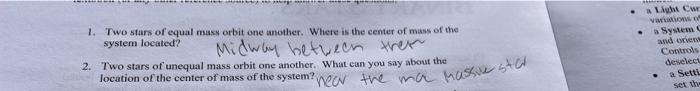 1. Two stars of equal mass orbit one another. Where is the center of mass of the
system located? Midway between them
2. Two stars of unequal mass orbit one another. What can you say about the
location of the center of mass of the system? near the ma massive star
• a Light Cur
variations of
• a System
and orient
Controls
deselect
• a Setti
set the